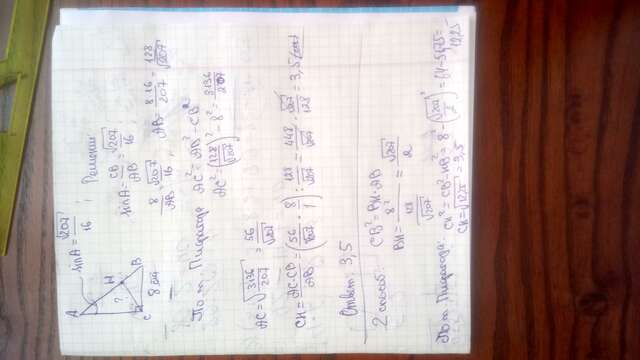 A
sinA = √207/16
H
?
C B
8 см
; Решение
sinA = CB/AB = √207/16
8/AB = √207/16, AB = 8·16/√207 = 128/√207
По т. Пифагора AC² = AB² - CB²
AC² = (128/√207)² - 8² = 3136/207
AC = √3136/207 = 56/√207
CH = AC·CB/AB = (56/√207 · 8/1) : 128/√207 = 448/√207 · √207/128 = 3,5 (см)
Ответ: 3,5
2 способ: CB² = BH·AB
BH = 8²/128/√207 = √207/2
По т. Пифагора: CH² = CB² - HB² = 8² - (√207/2)² = 64 - 51,75 = 12,25
CH = √12,25 = 3,5